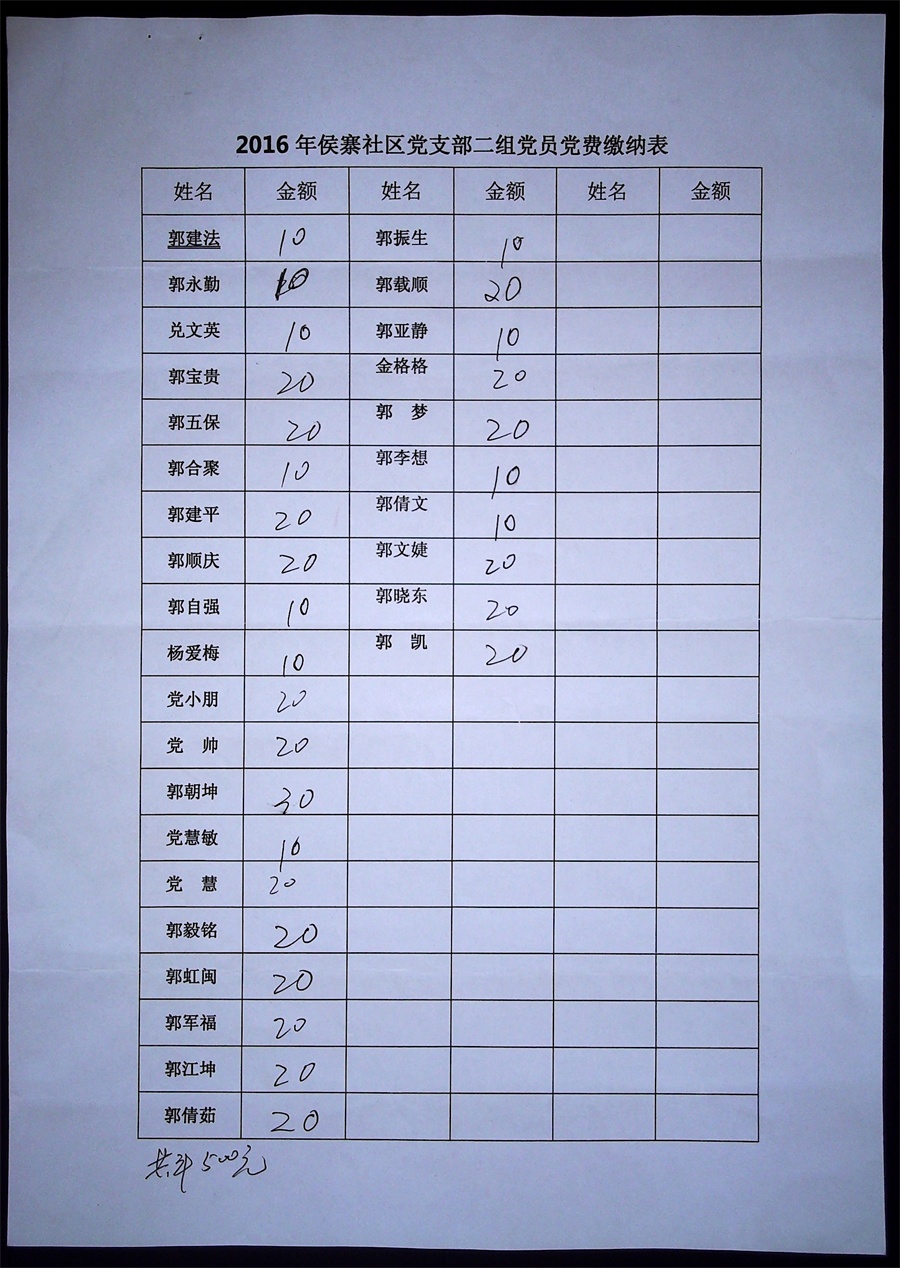 2016 年侯寨社区党支部二组党员党费缴纳表
姓名 金额 姓名 金额 姓名 金额
郭建法 10 郭振生 10
郭永勤 10 郭载顺 20
兑文英 10 郭亚静 10
郭宝贵 20 金格格 20
郭五保 20 郭 梦 20
郭合聚 10 郭李想 10
郭建平 20 郭倩文 10
郭顺庆 20 郭文婕 20
郭自强 10 郭晓东 20
杨爱梅 10 郭 凯 20
党小朋 20
党 帅 20
郭朝坤 30
党慧敏 10
党 慧 20
郭毅铭 20
郭虹闽 20
郭军福 20
郭江坤 20
郭倩茹 20
共计500元